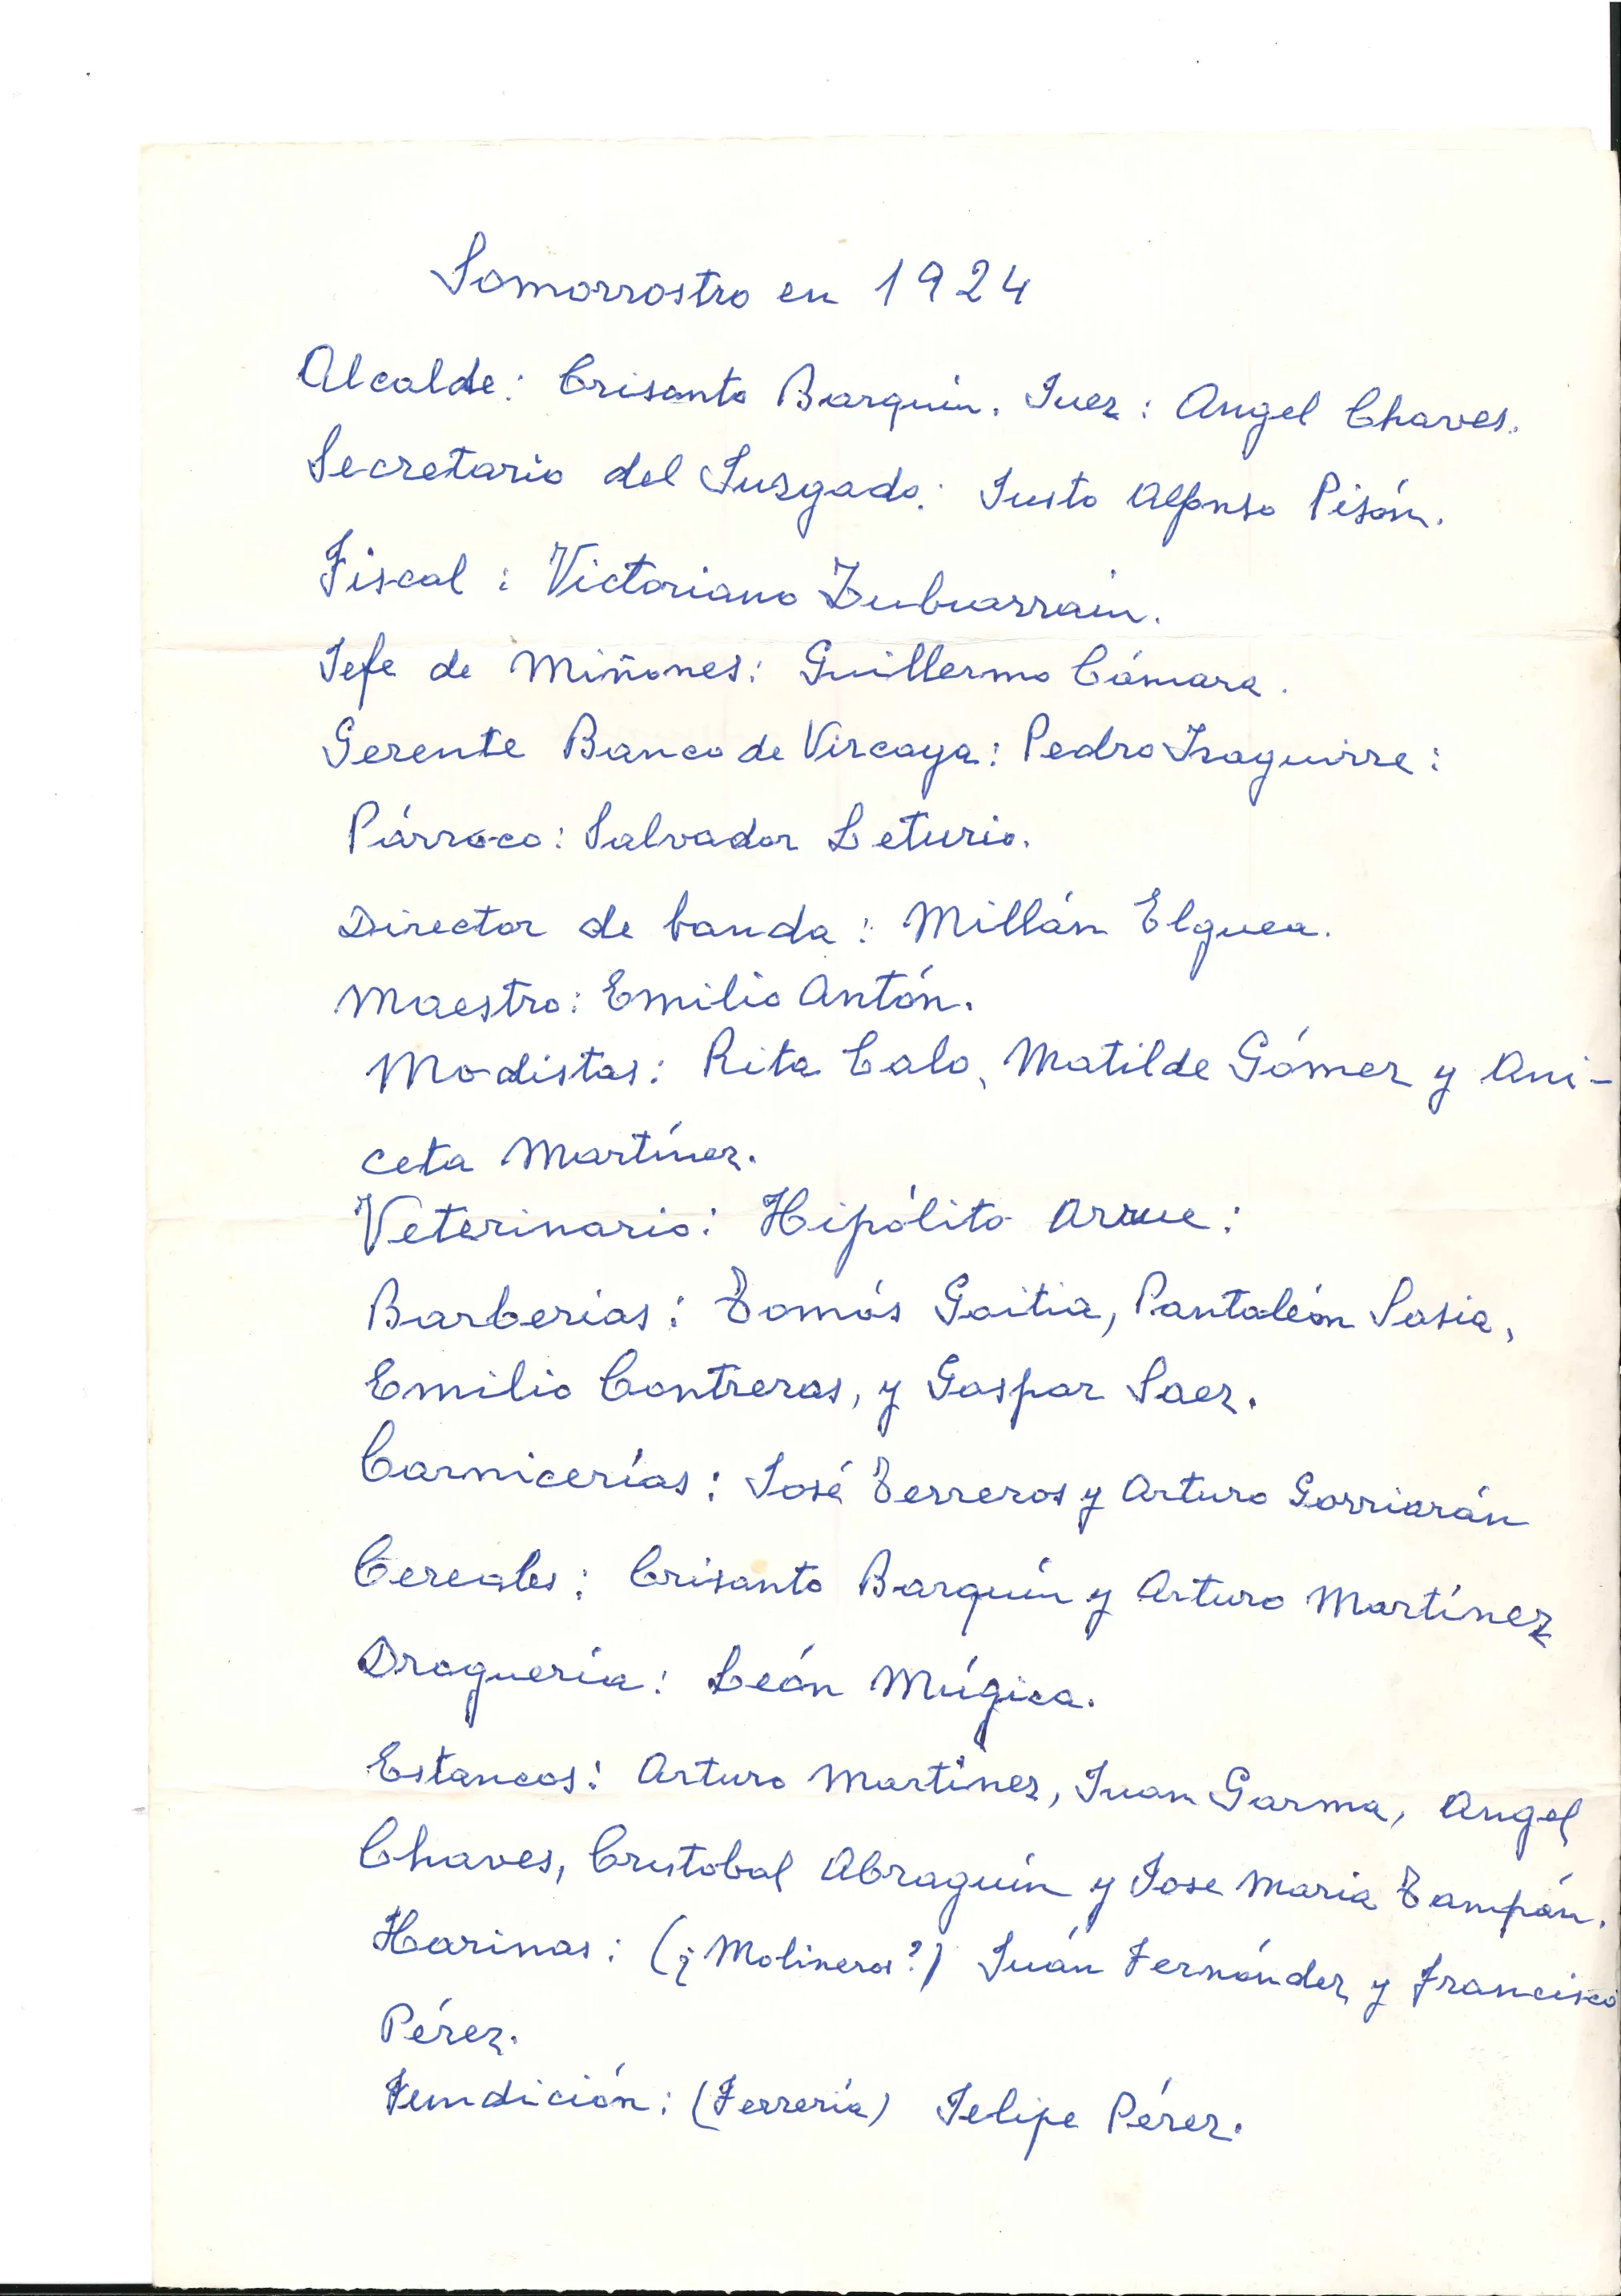 Somorrostro en 1924
Alcalde: Crisanto Barquin. Juez: Angel Chaves.
Secretario del Juzgado: Justo Alfonso Pisón.
Fiscal: Victoriano Zubiarrain.
Jefe de Miñones: Guillermo Cámara.
Gerente Banco de Vizcaya: Pedro Izaguirre:
Párroco: Salvador Leturio.
Director de banda: Millán Elguea.
Maestro: Emilio Antón.
Modistas: Rita Calo, Matilde Gómez y Ani-
ceta Martínez.
Veterinario: Hipólito Arrue:
Barberías: Tomás Goitia, Pantaleón Sasia,
Emilio Contreras, y Gaspar Saez.
Carnicerías: José Terreros y Arturo Gorriarán
Cereales: Crisanto Barquín y Arturo Martínez
Droguería: León Múgica.
Estancos: Arturo Martínez, Juan Garma, Angel
Chaves, Cristobal Abraguín y Jose Maria Tampán.
Harinas: (¿Molineros?) Juán Fernández y Francisco
Pérez.
Fundición: (Ferrería) Felipe Pérez.